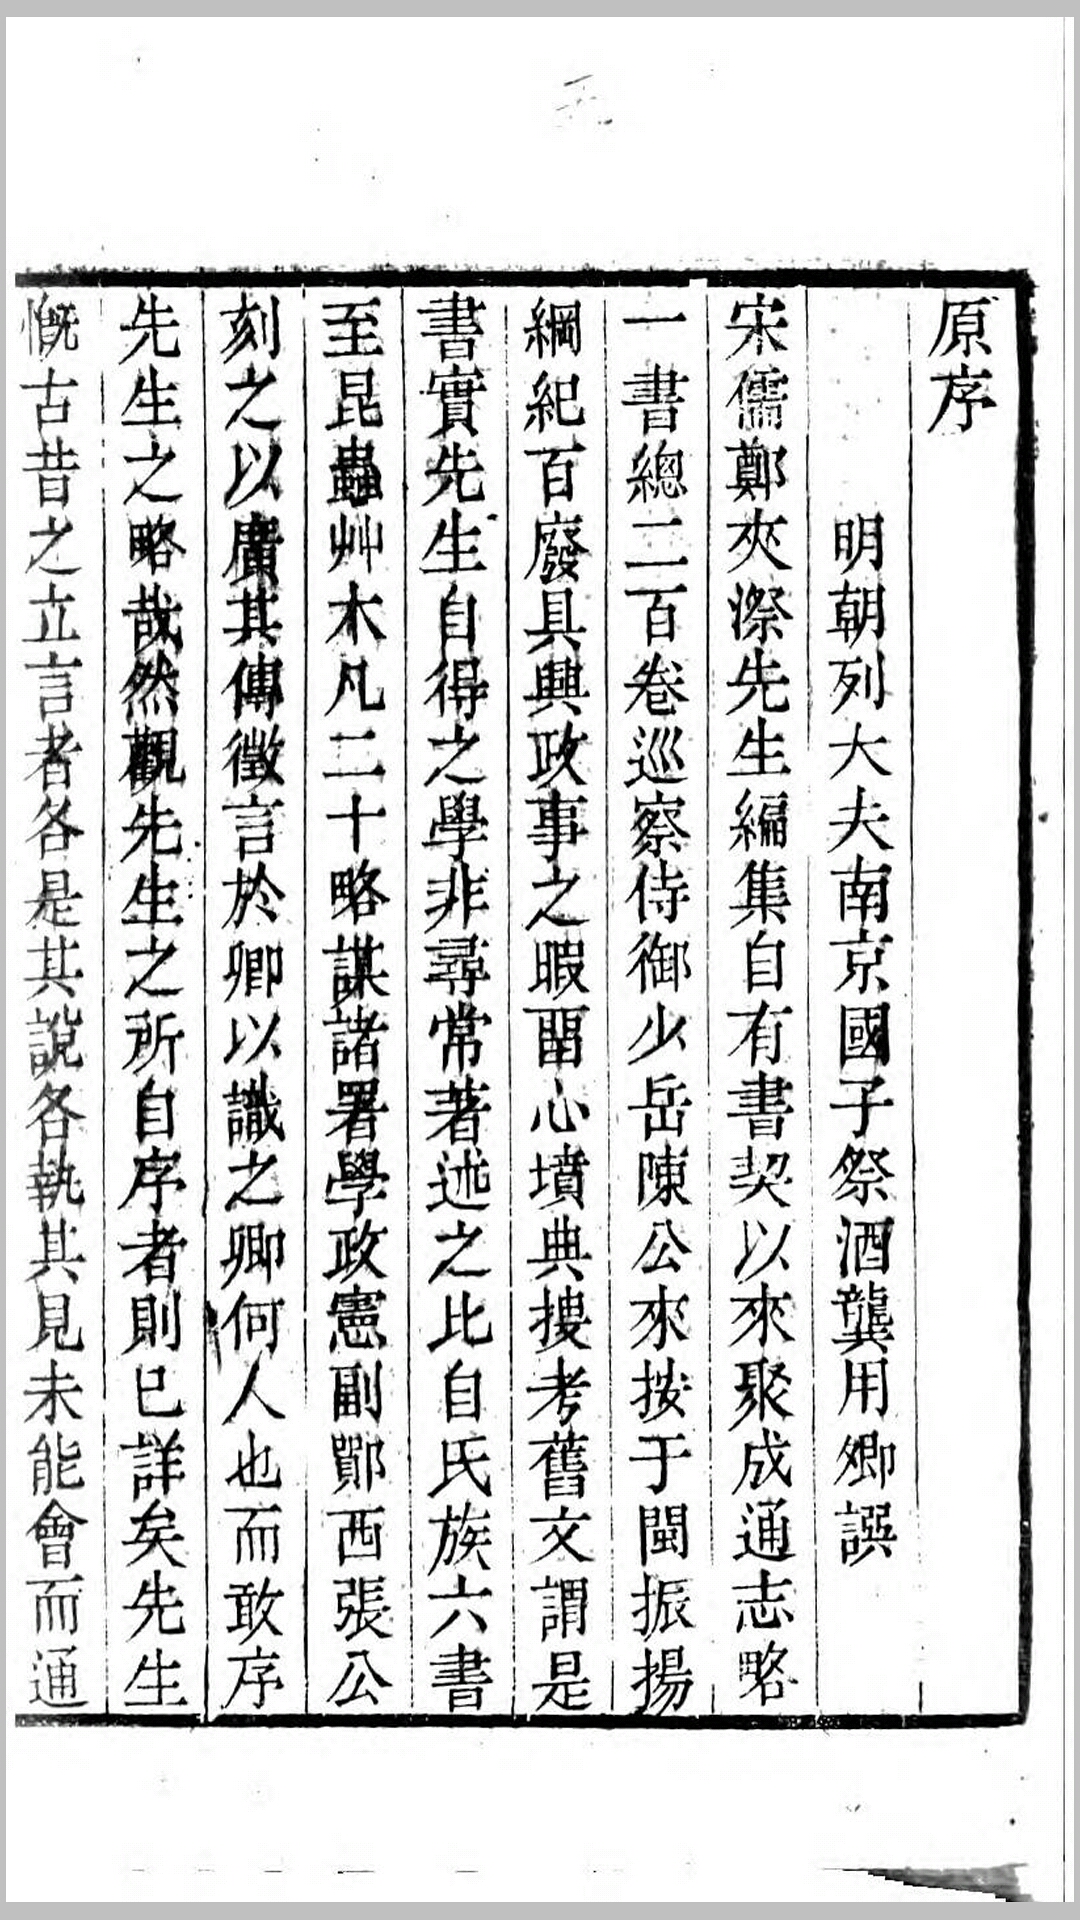 原序
明朝列大夫南京國子祭酒龔用卿譔
宋儒鄭夾漈先生編集自有書契以來聚成通志略
一書總二百卷巡察侍御少岳陳公來按于閩振揚
綱紀百廢具興政事之暇畱心墳典搜考舊文謂是
書實先生自得之學非尋常著述之比自氏族六書
至昆蟲艸木凡二十略謀諸署學政憲副鄖西張公
刻之以廣其傳徵言於卿以識之卿何人也而敢序
先生之略哉然觀先生之所自序者則已詳矣先生
慨古昔之立言者各是其說各執其見未能會而通